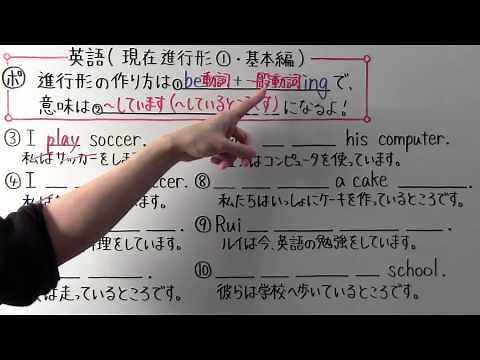 英語(現在進行形①・基本編)
ポ 進行形の作り方は①be動詞+一般動詞ingで、
意味は②〜しています(〜しているところです)になるよ!
③ I play soccer.
私はサッカーをしま
his computer.
はコンピュータを使っています。
④ I ccer.
私は す。
⑧ a cake .
私たちはいっしょにケーキを作っているところです。
理をしています。
⑨ Rui .
ルイは今、英語の勉強をしています。
は走っているところです。
⑩ school.
彼らは学校へ歩いているところです。